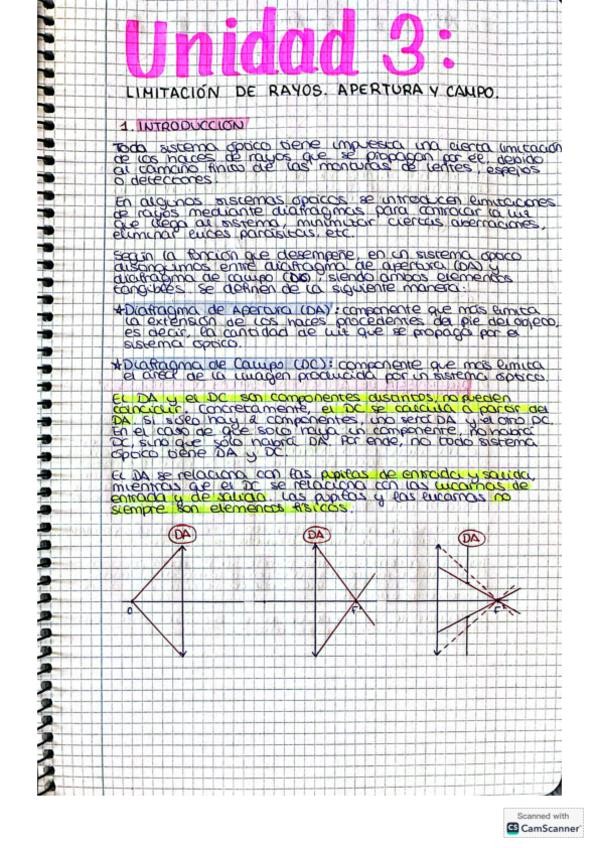 Unidad 3:
LIMITACIÓN DE RAYOS. APERTURA Y CAMPO.
1. INTRODUCCIÓN
Todo sistema óptico tiene impuesta una cierta limitación
de los haces de rayos que se propagan por él, debido
al tamaño finito de las monturas de lentes, espejos
o detectores.
En algunos sistemas ópticos se introducen limitaciones
de rayos mediante diafragmas para controlar la luz
que llega al sistema, minimizar ciertas aberraciones,
eliminar luces parásitas, etc.
Según la función que desempeñe, en un sistema óptico
distinguimos entre diafragma de apertura (DA) y
diafragma de campo (DC), siendo ambos elementos
tangibles. Se definen de la siguiente manera:
*Diafragma de Apertura (DA): componente que más limita
la extensión de los haces procedentes del pie del objeto,
es decir, la cantidad de luz que se propaga por el
sistema óptico.
*Diafragma de Campo (DC): componente que más limita
el área de la imagen producida por un sistema óptico.
El DA y el DC son componentes distintos, no pueden
coincidir. Concretamente, el DC se calcula a partir del
DA. Si sólo hay 2 componentes, uno será DA y el otro DC.
En el caso de que sólo haya un componente, no habrá
DC, sino que sólo habrá DA. Por ende, no todo sistema
óptico tiene DA y DC.
El DA se relaciona con las pupilas de entrada y salida,
mientras que el DC se relaciona con las lucarnas de
entrada y de salida. Las pupilas y las lucarnas no
siempre son elementos físicos.
DA DA DA
O F' F'
Scanned with
CS CamScanner